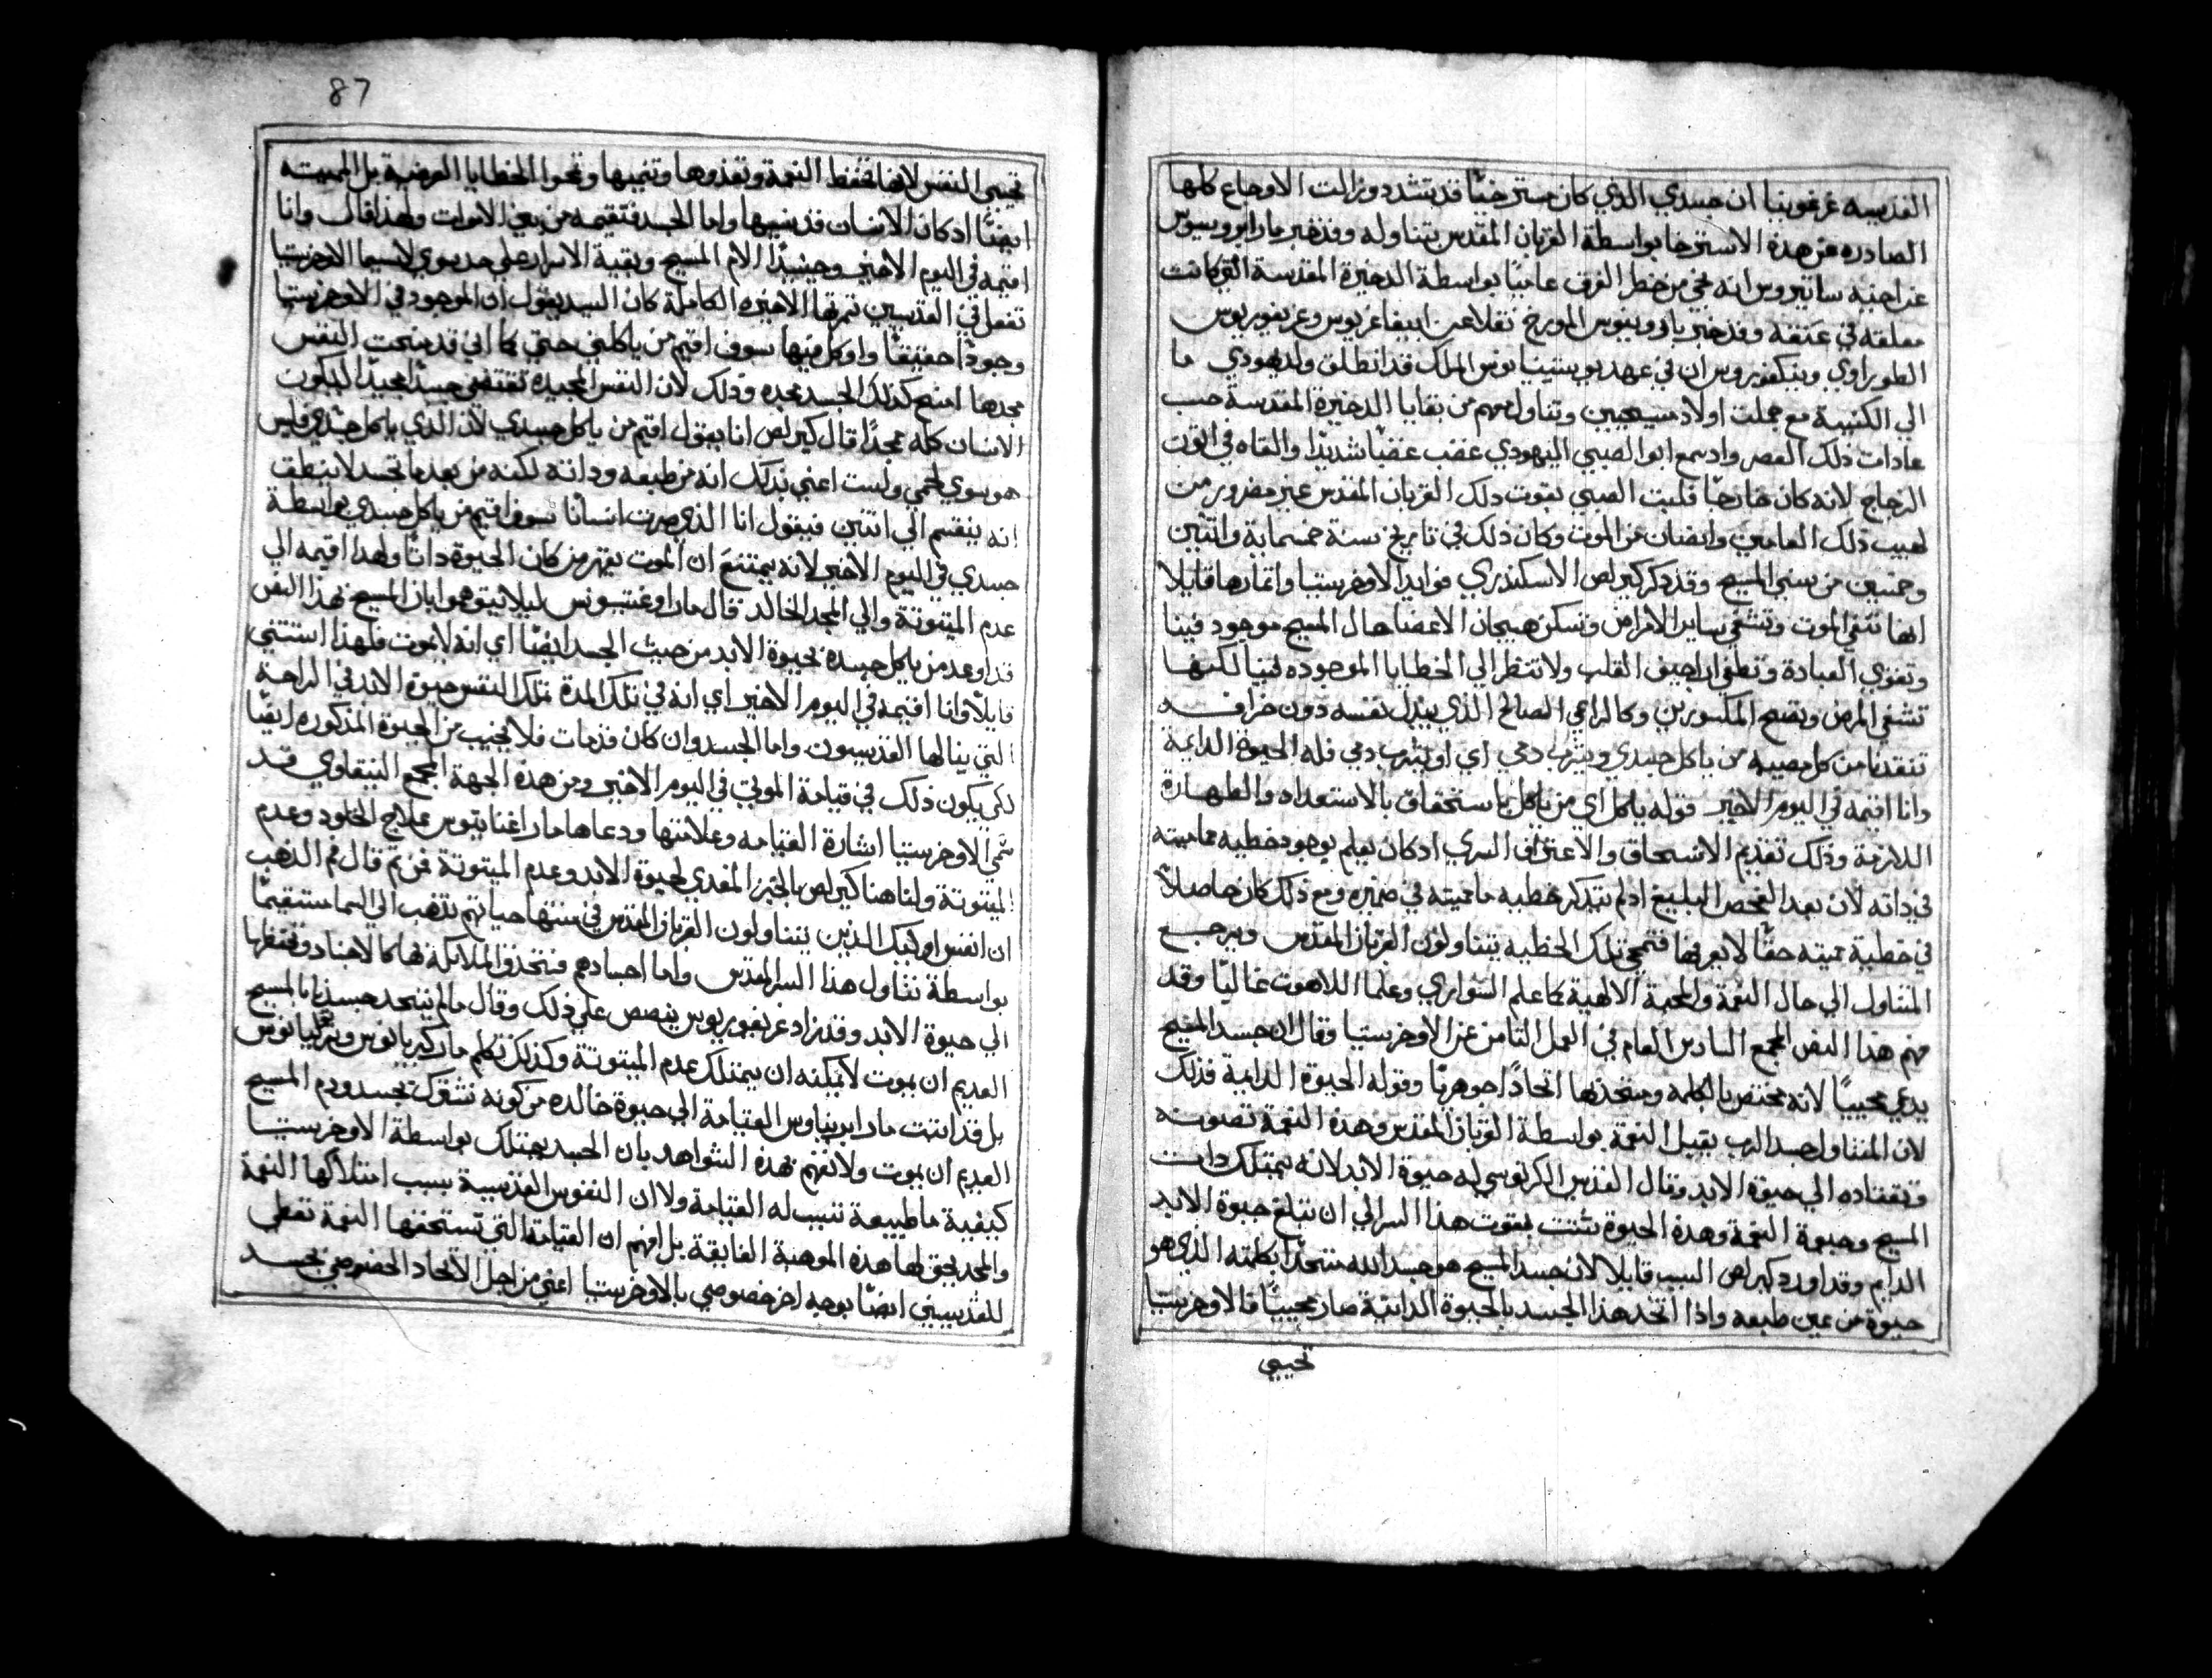 القديسه غرغونيا ان جسدي الذي كان مسترخيًا قد تشدد وزالت الاوجاع كلها
الصادره عن هذه الاسترخا بواسطة القربان المقدس بتناوله وقد خبر مار ابروسيوس
عن اخيه ساتيروس انه نجي من خطر الغرق عاينًا بواسطة الدخيرة المقدسة التي كانت
معلقه في عنقه وقد خبر باروبيوس المورخ نقلا عن ايفاغريوس وغريغوريوس
الطوراوي ونيكفوروس ان في عهد يوستينيانوس الملك قد انطلق ولد يهودي ما
الي الكنيسة مع جملت اولاد مسيحيين وتناول معهم من بقايا الدخيرة المقدسة حسب
عادات ذلك العصر واد سمع ابو الصبي اليهودي غضب غضبًا شديدًا والقاه في اتون
الزجاج لانه كان خارجًا فلبت الصبي بقوت دلك القربان المقدس غير مضرور من
لهيب ذلك العامين وانصان من الموت وكان ذلك في تاريخ سنة خمسماية واتنين
وخمسين من سني المسيح وقد ذكر كيرلص الاسكندري فوايد الاوخرستيا واتمارها قايلاً
انها تنفي الموت وتشفي ساير الامراض وتسكن هيجان الاعضا هال المسيح موجود فينا
وتقوي العبادة وتطفي اراجيف القلب ولا تنظر الي الخطايا الموجوده فينا لكنها
تشفي المرض وتصح المكسورين وكالراعي الصالح الذي يبدل نفسه دون خرافه
تنقدنا من كل مصيبه من ياكل جسدي ويشرب دمي اي او يشرب دمي فله الحيوة الدايمة
وانا اقيمه في اليوم الاخير قوله ياكل اي من ياكل باستحقاق بالاستعداد والطهارة
اللازمة وذلك تقديم الانسحاق والاعتراف السري اد كان يعلم بوجود خطيه مماميته
في ذاته لان بعد الفحص البليغ اد لم يتذكر خطيه ما مميته في ضميره ومع ذلك كان حاصلاً
في خطية مميته حقًا لا يعرفها فتمحي تلك الخطيه بتناولون القربان المقدس ويرجع
المتناول الي حال النعمة والمحبة الالهية كما علم السواري وعلما اللاهوت غالبًا وقد
فهم هدا النص المجمع السادس العام في العمل التامن عن الاوخرستيا وقال ان جسد المسيح
يدعي محييًا لانه مختص بالكلمه ومتحد بها اتحادًا جوهريًا وقوله الحيوة الدايمة فذلك
لان المتناول جسد الرب يقبل النعمة بواسطة القربان المقدس وهذه النعمة تصونه
وتقتاده الي حيوة الابد وقال القديس الكرلوسي له حيوة الابد لانه يمتلك دات
المسيح وحيوة النعمة وهدة الحيوة تتبت بقوت هدا السر الي ان تبلغ حيوة الابد
الدايم وقد اورد كيرلص السبب قايلا لان جسد المسيح هو جسد الله متحدًا بكلمته الذي هو
حيوة من عين طبعه واذا اتحد هدا الجسد بالحيوة الداتية صار محييًا فالاوخرستيا
تحيي
87
تحيي النفس لانها تحفظ النعمة وتغدوها وتنميها وتمحوا الخطايا العرضية بل المميته
ايضًا اد كان الانسان قد نسيها واما الجسد فتقيمه من بين الاموات ولهذا قال وانا
اقيمه في اليوم الاخير وحينيدًا الام المسيح وبقية الاسرار علي حد سوي لاسيما الاوخرستيا
تفعل في القديسين تمرتها الاخيره الكاملة كان السيد يقول ان الموجود في الاوخرستيا
وجودًا حقيقيًا واوكل فيها سوف اقيم من ياكلني حتي كما اني قد منحت النفس
مجدها امنح كدلك الجسد مجده وذلك لان النفس المجيده تقتضي جسدًا مجيدًا ليكون
الانسان كله ممجدًا قال كيرلص انا يقول اقيم من ياكل جسدي لان الذي ياكل جسدي فليس
هو سوي لحمي ولست اعني بدلك انه من طبعه وداته لكنه من بعد ما تجسد لا ينطق
انه ينقسم الي اتنين فيقول انا الذي صرت انسانًا سوف اقيم من ياكل جسدي بواسطة
جسدي في اليوم الاخير لانه يمتنع ان الموت يقهر من كان الحيوة داتًا ولهدا اقيمه الي
عدم الميتوتة والي المجد الخالد قال مار اوغسنوس ليلا يتوهموا بان المسيح بهدا النص
قد اوعد من ياكل جسده بحيوة الابد من حيث الجسد ايضًا اي انه لا يموت فلهذا استتني
قايلاً وانا اقيمه في اليوم الاخير اي انه في تلك المدة تملك النفس حيوة الابد في الراحه
التي ينالها القديسون واما الجسد وان كان قد مات فلا يخيب من الحيوة المذكوره ايضًا
لكي يكون ذلك في قيامة الموتي في اليوم الاخير ومن هذه الجهة المجمع النيقاوي قد
سمي الاوخرستيا اشارة القيامه وعلامتها ودعاها مار اغناتيوس علاج الخلود وعدم
الميتوتة ولنا هنا كيرلص بالخبز المغدي لحيوة الابد وعدم الميتوتة فمن تم قال فم الدهب
ان انفس اوليك الذين يتناولون القربان المقدس في منتها حياتهم تدهب الي السما مستقيمًا
بواسطة تناول هذا السر المقدس واما اجسادهم فتتخد الملايكة بها كالاجناد وتحفظها
الي حيوة الابد وقد زاد غريغوريوس ينصص علي ذلك وقال مالم يتحد جسدنا بالمسيح
العديم ان يموت لا يمكنه ان يمتلك عدم الميتوتة وكذلك تكلم مار كبريانوس وترتليانوس
بل قد اتبت مار ايريناوس القيامة الي حيوة خالده من كونه نشترك بجسد ودم المسيح
العديم ان يموت ولا تفهم بهذه الشواهد بان الجسد يمتلك بواسطة الاوخرستيا
كيفية ما طبيعة تسبب له القيامة ولا ان النفوس القديسة بسبب امتلاكها النعمة
والمجد يحق لها هذه الموهبة الفايقة بل افهم ان القيامة التي تستحقها النعمة تعطي
للقديسين ايضًا بوجه اخر خصوصي بالاوخرستيا اعني من اجل الاتحاد الخصوصي بجسد